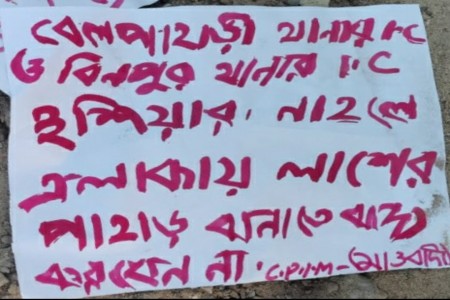 বেলপাহাড়ী থানার IC
ও বিনপুর থানার IC
হুশিয়ার. নাহলে
এলাকায় লাশের
পাহাড় বানাতে বাধ্য
করবেন না. C.P.I.M-মাওবাদী